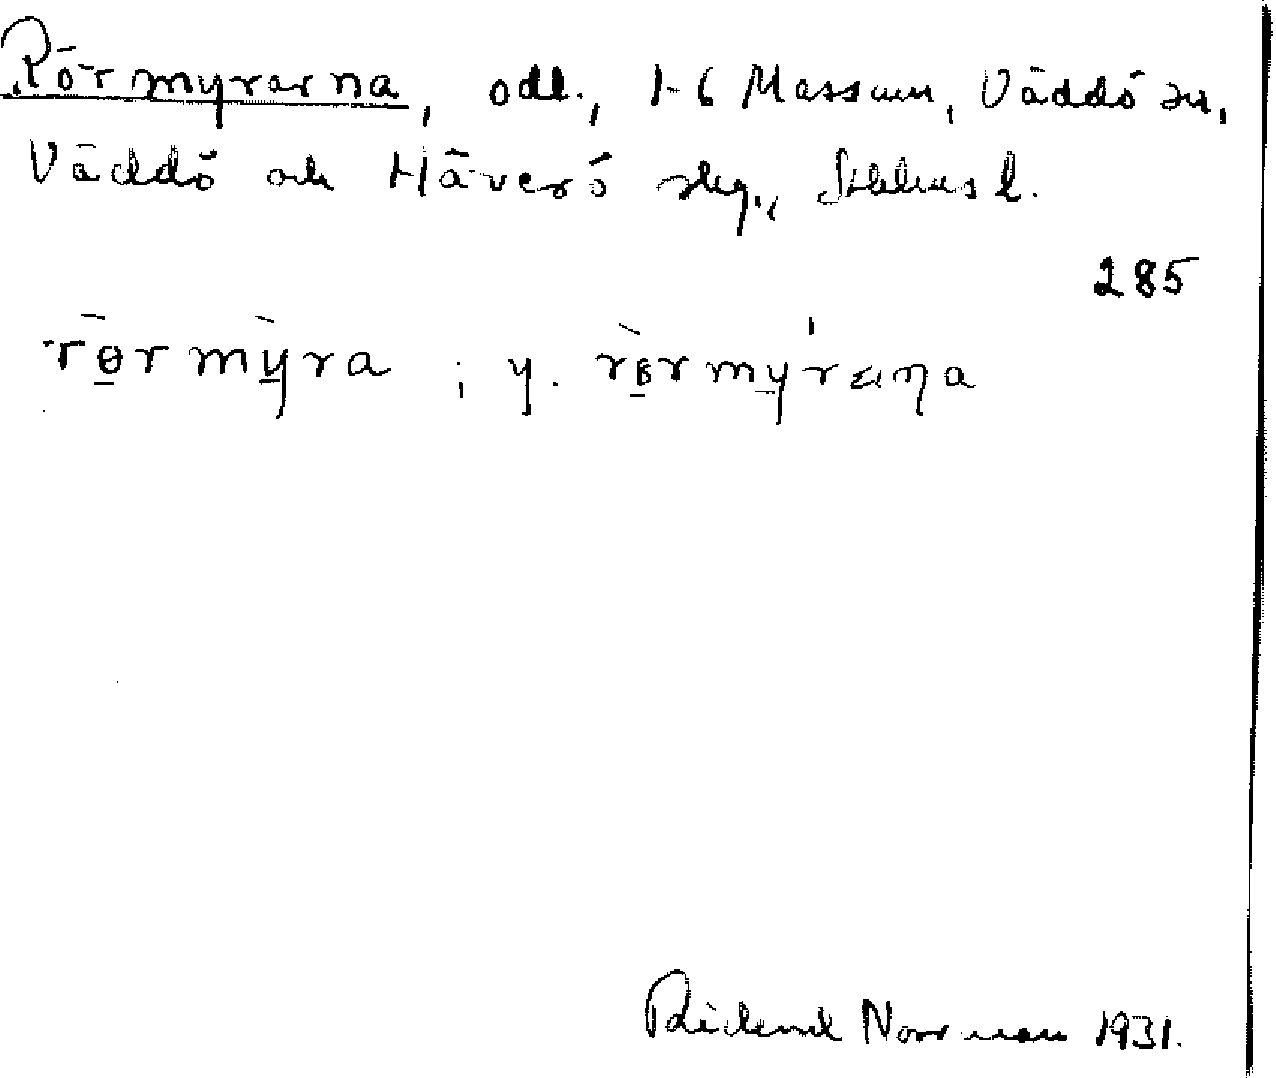 Rörmyrarna, odl., 1-6 Massum, Väddö sn,
Väddö och Häverö skg., Sthlms l.
285
rɵrmỳra ; y. rɵ̀rmýraɳa
Rickard Norrman 1931.